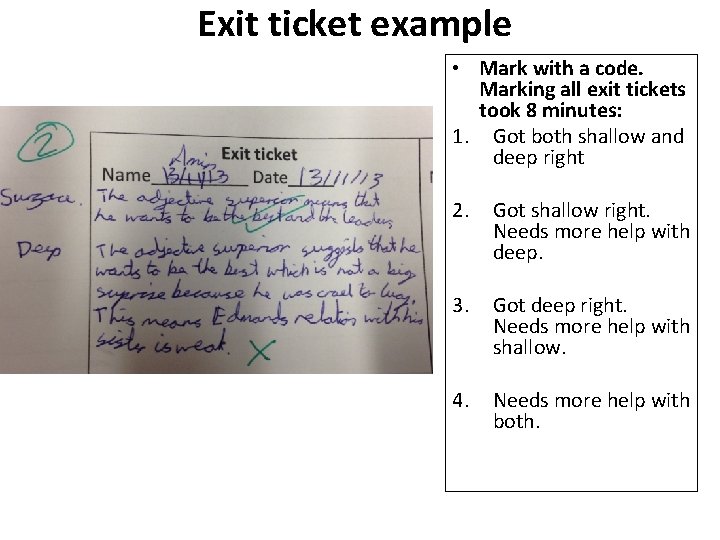 Exit ticket example
2
Exit ticket
Name 13/11/13 Date 13/11/13
Surface.
The adjective superior means that
he wants to be the best and the leaders
Deep
The adjective superior suggests that he
wants to be the best which is not a big
suprise because he was cruel to lucy.
This means Edmunds relatios with his
sister is weak.
• Mark with a code.
Marking all exit tickets
took 8 minutes:
1. Got both shallow and
deep right
2. Got shallow right.
Needs more help with
deep.
3. Got deep right.
Needs more help with
shallow.
4. Needs more help with
both.